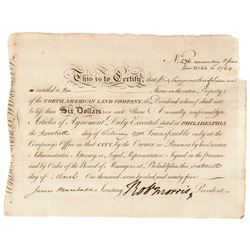 This is to Certify, that
is entitled to Two Shares in the entire Property
of the NORTH AMERICAN LAND COMPANY; the Dividend whereof shall not
be less than Six Dollars on each Share Annually, conformably to
Articles of Agreement Duly Executed dated at PHILADELPHIA
the day of February 1795 Transferable only at the
Company's Office in that CITY by the Owner in Person or by his
Administrator Attorney or Legal Representative Signed in the presence
and by Order of the Board of Managers, at Philadelphia this
day of March One thousand seven hundred and ninety five
James Marshall Secretary Robt Morris President